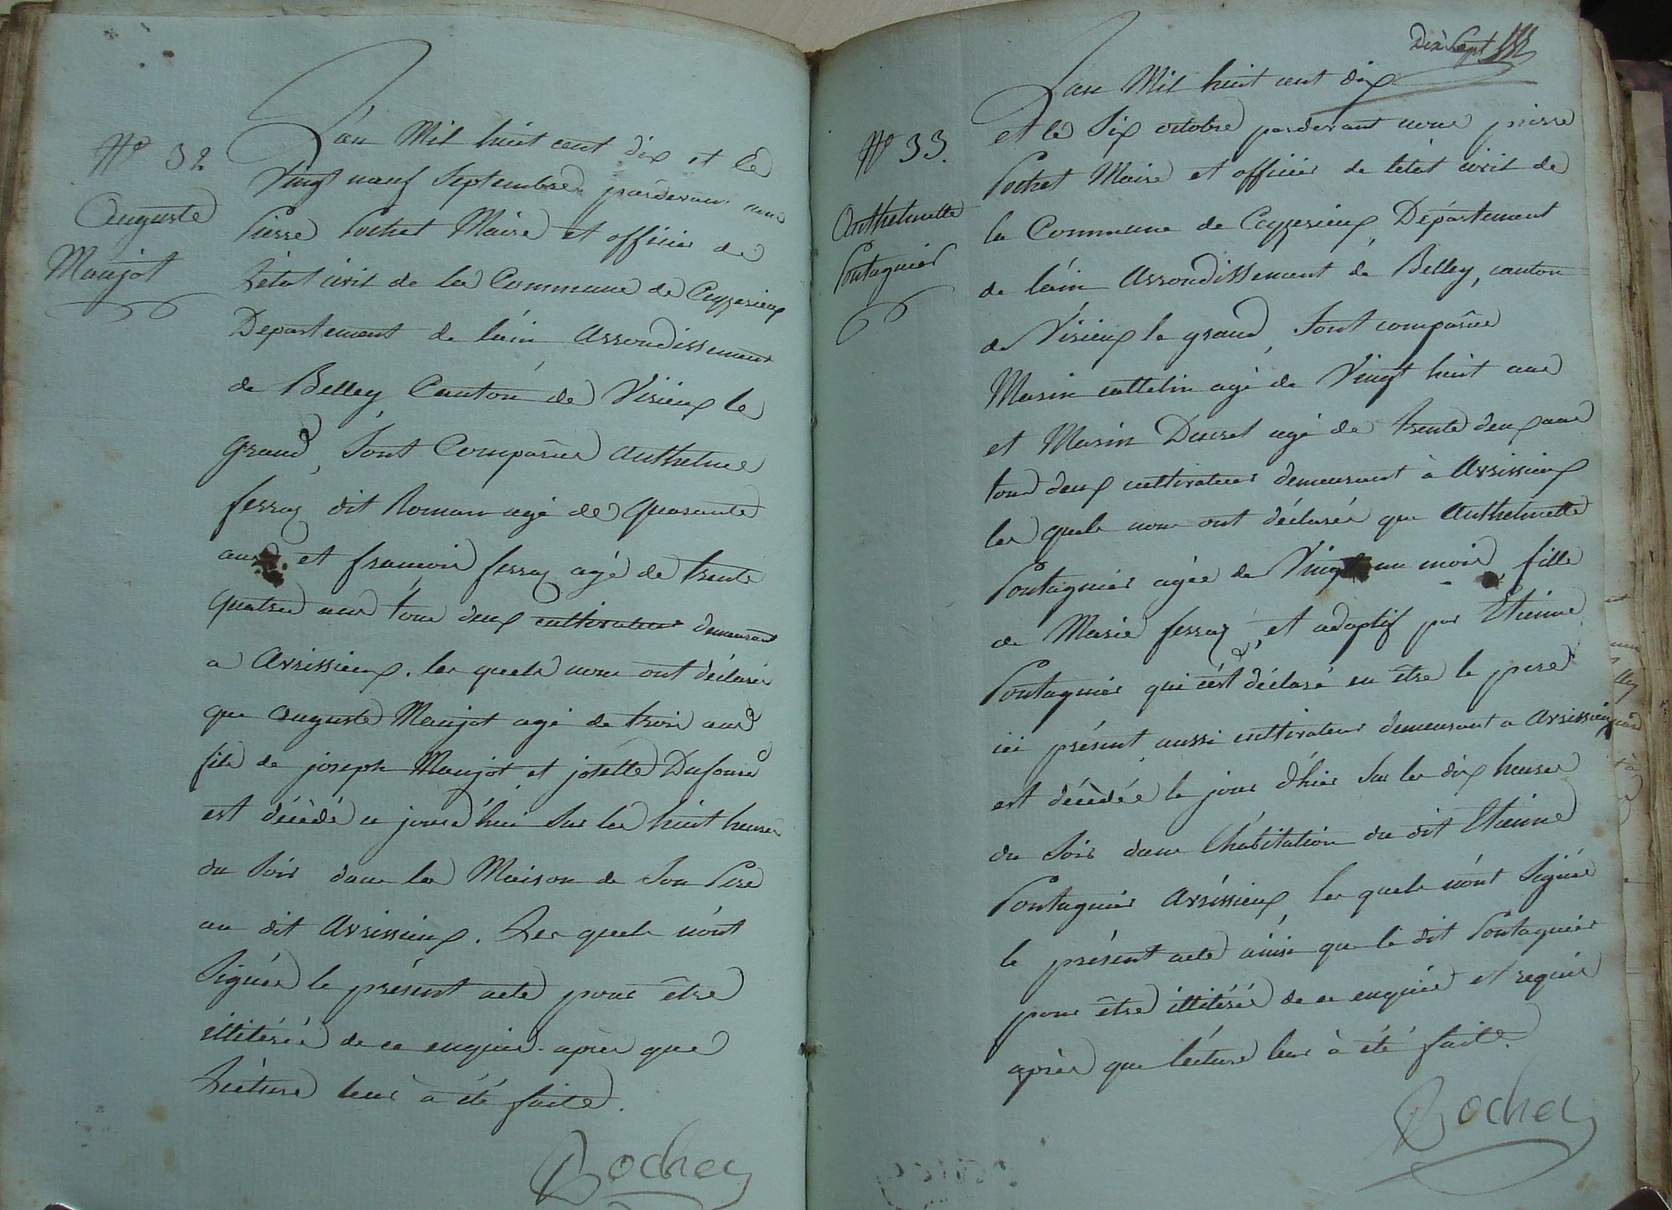 N° 32
Auguste
Maujot
L'an Mil huit cent dix et le
Vingt neuf Septembre pardevant nous
Pierre Pochet Maire et officier de
L'état civil de la Commune de Ceyzerieux
Departement de l'ain Arrondissement
de Belley Canton de Virieux le
grand, Sont Comparus Anthelme
ferraz dit Roman agé de quarante
ans et francois ferraz agé de trente
quatre ans tous deux cultivateurs demeurant
a Avrissieux. les quels nous ont déclarés
que Auguste Maujot agé de trois ans
fils de joseph Maujot et josette Dufour
est décédé ce jourd'hui Sur les huit heures
du Soir dans la Maison de Son Pere
au dit Avrissieux. Les quels n'ont
Signés le présent acte pour être
illitérés de ce enquis. après que
Lecture leur à été faite.
Pochet
Dix Sept
N° 33.
Anthelmette
Pontagnier
L'an Mil huit cent dix
et le Six octobre pardevant nous pierre
Pochet Maire et officier de l'état civil de
la Commune de Ceyzerieux, Département
de l'ain Arrondissement de Belley, canton
de Virieux le grand, Sont comparus
Marin cattelin agé de Vingt huit ans
et Marin Ducret agé de trente deux ans
tous deux cultivateurs demeurant à Avrissieux
les quels nous ont déclarés que Anthelmette
Pontagnier agée de Vingt un mois, fille
de Marie ferraz, et adoptif par Etienne
Pontagnier qui c'est déclaré en être le pere
ici présent aussi cultivateur demeurant a Avrissieux
est décédée le jour d'hier Sur les dix heures
du Soir dans l'habitation du dit Etienne
Pontagnier Avrissieux les quels n'ont Signés
le présent acte ainsi que le dit Pontagnier
pour être illitérés de ce enquis et requis
après que lécture leur à été faite.
Pochet